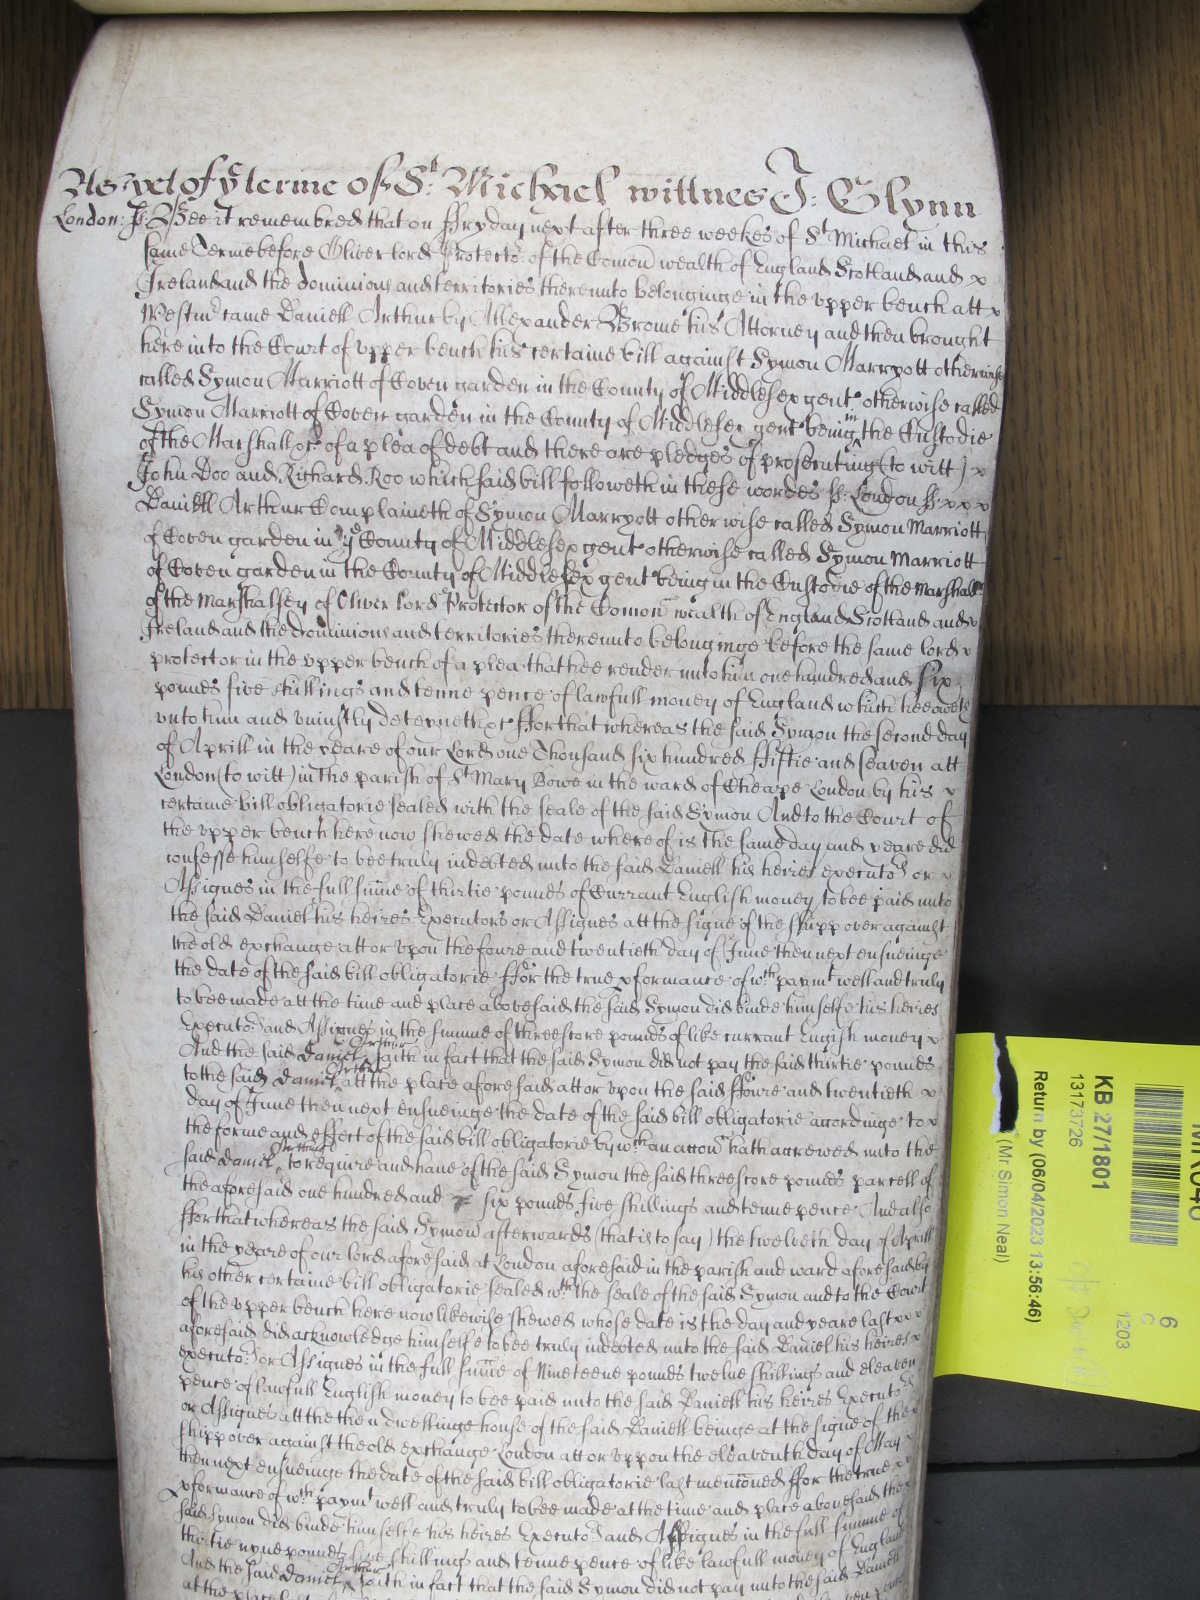 As yet of ye terme of St: Michael wittnes J: Glynn
London: ss: Bee it remembred that on ffryday next after three weekes of St Michael in this
same Terme before Oliver lord Protector of the Comon wealth of England Scotland and x
Ireland and the dominions and territories thereunto belonginge in the upper bench att x
Westmr came Daniell Arthur by Allexander Brome his Attorney and then brought
here into the Court of upper bench his certaine bill against Symon Marryott otherwise
called Symon Marriott of Coven garden in the County of Middlesex gent otherwise called
Symon Marriott of Coven garden in the County of Middlesex gent being in the Custodie
of the Marshall &c of a plea of debt and there are pledges of prosecuting (to witt) x
John Doo and Richard Roo which said bill followeth in these wordes ss: London ss: x x x
Daniell Arthur Complaineth of Symon Marryott otherwise called Symon Marriott
of Coven garden in ye County of Middlesex gent otherwise called Symon Marriott
of Coven garden in the County of Middlesex gent being in the Custodie of the Marshall
of the Marshallsey of Oliver Lord Protector of the Comon wealth of England Scotland and
Ireland and the dominions and territories thereunto belonginge before the same lord x
protector in the upper bench of a plea that hee render unto him one hundred and six
pounds five shillings and tenne pence of lawfull money of England which hee oweth
unto him and uniustly deteyneth &c ffor that whereas the said Symon the second day
of Aprill in the yeare of our Lord one Thousand six hundred ffiftie and seaven att
London (to witt) in the parish of St Mary Bowe in the ward of Cheape London by his x
certaine bill obligatorie sealed with the seale of the said Symon And to the Court of
the upper bench here now shewed the date whereof is the same day and yeare did
confesse himselfe to bee truly indebted unto the said Daniell his heires executors or x
Assignes in the full summe of thirtie pounds of Currant English money to bee paid unto
the said Daniell his heires Executors or Assignes att the signe of the shipp over against
the old exchange att or upon the foure and twentieth day of June then next ensueinge
the date of the said bill obligatorie ffor the true pformance of wth paymt well and truly
to bee made att the time and place abovesaid the said Symon did binde himselfe his heires
Executors and Assignes in the summe of threescore pounds of like currant Engish money x
And the said Daniel Arthur saith in fact that the said Symon did not pay the said thirtie pounds
to the said Daniel Arthur att the place aforesaid att or upon the said ffoure and twentieth x
day of June then next ensueinge the date of the said bill obligatorie accordinge to x
the forme and effect of the said bill obligatorie by wth an accon hath accrewed unto the
said Daniel Arthur to require and have of the said Symon the said threescore pounds parcell of
the aforesaid one hundred and six pounds five shillings and tenne pence And also
ffor that whereas the said Symon afterwards (that is to say) the twelveth day of Aprill
in the yeare of our lord aforesaid at London aforesaid in the parish and ward aforesaid by
his other certaine bill obligatorie sealed wth the seale of the said Symon and to the Court
of the upper bench here now likewise shewed whose date is the day and yeare last x x
aforesaid did acknowledge himselfe to bee truly indebted unto the said Daniell his heires x
executors or Assignes in the full summe of Nineteene pounds twelve shillings and eleaven
pence of lawfull English money to bee paid unto the said Daniell his heires Executors
or Assignes att the then dwellinge house of the said Daniell beinge at the signe of the
shipp over against the old exchange London att or uppon the eleaventh day of May x
then next ensueinge the date of the said bill obligatorie last mencioned ffor the true x
pformance of wth paymt well and truly to bee made at the time and place abovesaid the
said Symon did binde himselfe his heires Executors and Assignes in the full summe of
thirtie nyne pounds five shillings and tenne pence of like lawfull money of England
And the said Daniel Arthur saith in fact that the said Symon did not pay unto the said Daniell
at the place
KB 27/1801
13173726
Return by (06/04/2023 13:56:46)
(Mr Simon Neal)
6
C
1203